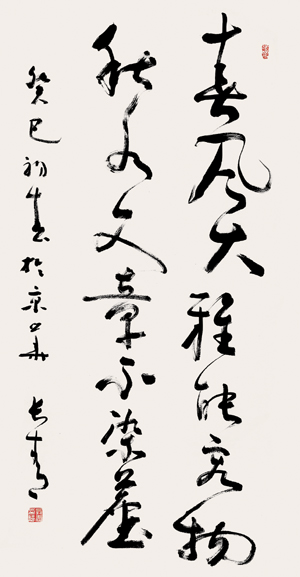 春风大雅能容物
秋水文章不染塵
癸巳初春於京華